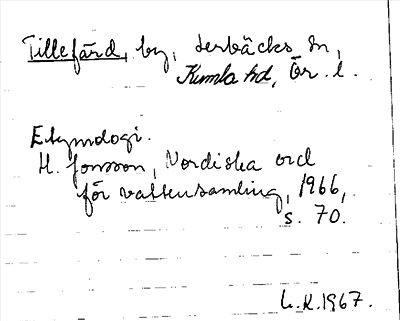 Tillefärd, by, Lerbäcks sn,
Kumla hd, Ör. l.
Etymologi.
H. Jonsson, Nordiska ord
för vattensamling, 1966,
s. 70.
L.K. 1967.